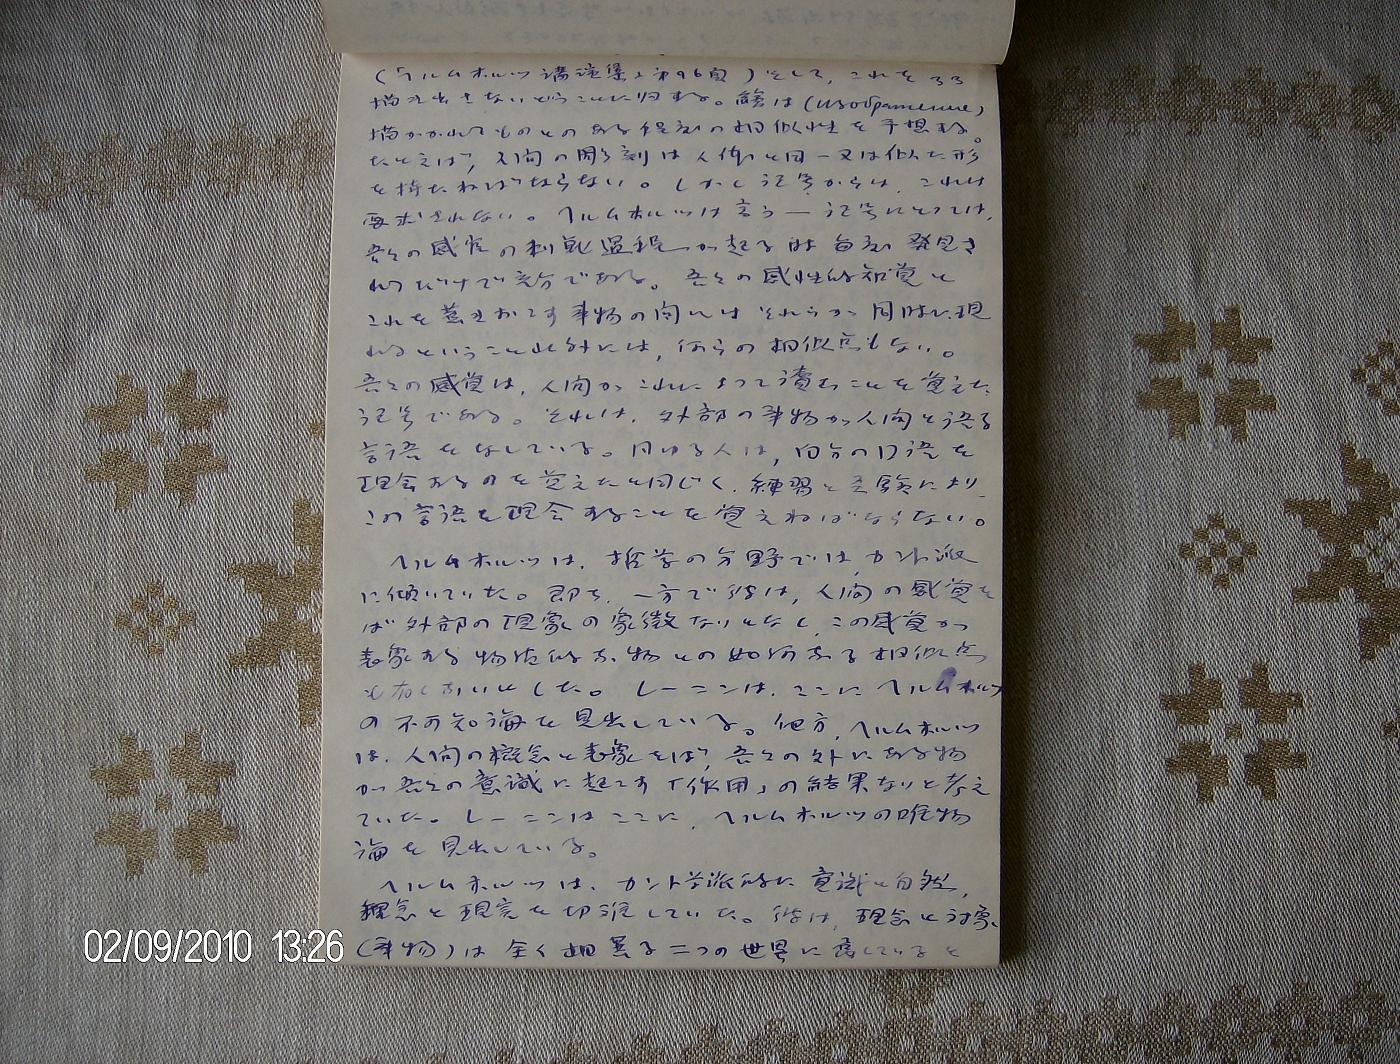 (「ヘルムホルツ講演集」第96頁)そして、これを
描き出さないということに归する。繪は(изображение)
描かれてものとのある程度の相似性を予想する。
たとえば、人间の彫刻は人体と同一又は似た形
を持たねばならない。しかし记号からは、これは
要求されない。ヘルムホルツは言う―记号にとっては、
吾々の感官の刺戟过程が起る时毎に発見さ
れるだけで充分である。吾々の感性的知覚と
これを惹き起こす事物の间には それらが同时に現
れるということ以外には、何らの相似点もない。
吾々の感覚は、人间がこれによって讀むことを覚えた
记号である。それは、外部の事物が人间と语る
言语をなしている。凡ゆる人は、自分の口语を
理会するのを覚えたと同じく、練習と 験により、
この言语を理会することを覚えねばならない。
ヘルムホルツは、哲学の分野では、カント派
に傾いていた。即ち、一方で彼は、人间の感覚を
ば外部の現象の象徴なりとなし、この感覚が
表象する物质的な物との如何なる相似点
も有しないとした。レーニンは、ここにヘルムホルツ
の不可知論を見出している。他方、ヘルムホルツ
は、人间の概念と表象をば、吾々の外にある物
が吾々の意識に起こす「作用」の結果なりと考え
ていた。レーニンはここに、ヘルムホルツの唯物
論を見出している。
ヘルムホルツは、カント学派的に意識と自然、
理念と現実を切離していた。彼は、理念と対象
(事物)は全く相異る二つの世界に属していると
02/09/2010 13:26